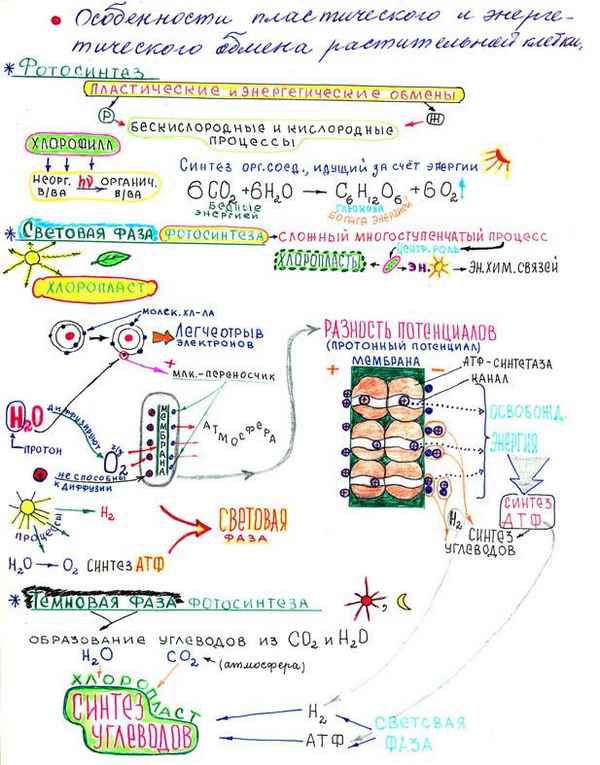 • Особенности пластического и энерге-
тического обмена растительной клетки.
* Фотосинтез
ПЛАСТИЧЕСКИЕ И ЭНЕРГЕТИЧЕСКИЕ ОБМЕНЫ
Р
Ж
БЕСКИСЛОРОДНЫЕ И КИСЛОРОДНЫЕ
ПРОЦЕССЫ
ХЛОРОФИЛЛ
НЕОРГ. hν ОРГАНИЧ.
В/ВА В/ВА
СИНТЕЗ ОРГ.СОЕД., ИДУЩИЙ ЗА СЧЁТ ЭНЕРГИИ
6CO2 + 6H2O → C6H12O6 + 6O2↑
БЕДНЫЕ
ЭНЕРГИЕЙ
ГЛЮКОЗА
БОГАТА ЭНЕРГИЕЙ
* СВЕТОВАЯ ФАЗА ФОТОСИНТЕЗА → СЛОЖНЫЙ МНОГОСТУПЕНЧАТЫЙ ПРОЦЕСС
ЦЕНТР. РОЛЬ
ХЛОРОПЛАСТЫ
ЭН.
ЭН.ХИМ.СВЯЗЕЙ
ХЛОРОПЛАСТ
МОЛЕК. ХЛ-ЛА
ЛЕГЧЕ ОТРЫВ
ЭЛЕКТРОНОВ
РАЗНОСТЬ ПОТЕНЦИАЛОВ
(ПРОТОННЫЙ ПОТЕНЦИАЛ)
+ МЕМБРАНА –
АТФ-СИНТЕТАЗА
КАНАЛ
+
МЛК.-ПЕРЕНОСЧИК
H2O
ДИФФУЗИРУЮТ
O2
МЕМБРАНА
АТМОСФЕРА
ПРОТОН
НЕ СПОСОБНЫ
К ДИФФУЗИИ
ОСВОБОЖД.
ЭНЕРГИЯ
СИНТЕЗ
АТФ
H2
СИНТЕЗ
УГЛЕВОДОВ
ПРОЦЕССЫ
H2
H2O → O2 СИНТЕЗ АТФ
СВЕТОВАЯ
ФАЗА
* ТЕМНОВАЯ ФАЗА ФОТОСИНТЕЗА
ОБРАЗОВАНИЕ УГЛЕВОДОВ ИЗ CO2 и H2O
H2O CO2 (атмосфера)
ХЛОРОПЛАСТ
СИНТЕЗ
УГЛЕВОДОВ
H2
АТФ
СВЕТОВАЯ
ФАЗА